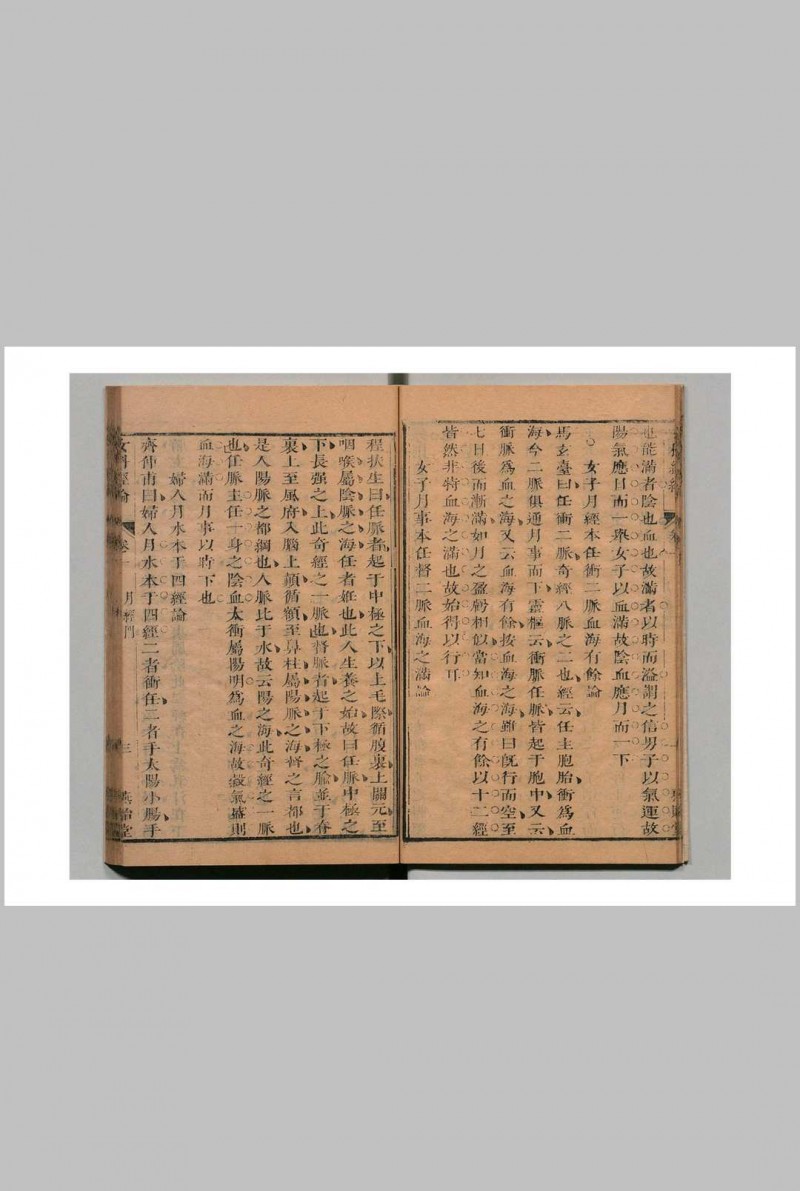 也能滿者陰也血也故滿者以時而溢謂之信男子以氣運故
陽氣應日而一舉女子以血滿故陰血應月而一下
女子月經本任衝二脈血海有餘論
馬玄臺曰任衝二脈奇經八脈之二也經云任主胞胎衝爲血
海今二脈俱通月事而下靈樞云衝脈任脈皆起于胞中又云
衝脈爲血之海又云血海有餘按血海之海雖曰旣行而空至
七日後而漸滿如月之盈虧相似當知血海之有餘以十二經
皆然非特血海之滿也故始得以行耳
女子月事本任督二脈血海之滿論
程扶生曰任脈者起于中極之下以上毛際循腹裏上關元至
咽喉屬陰脈之海任者姙也此人生養之始故曰任脈中極之
下長强之上此奇經之一脈也督脈者起于下極之腧並于脊
裏上至風府入腦上顚循額至鼻柱屬陽脈之海督之言都也
是人陽脈之都綱也人脈比于水故云陽之海此奇經之一脈
也任脈主任一身之陰血太衝屬陽明爲血之海故穀氣盛則
血海滿而月事以時下也
婦人月水本于四經論
齊仲甫曰婦人月水本于四經二者衝任二者手太陽小腸手
女科經論
卷一
月經門
三
燕怡堂